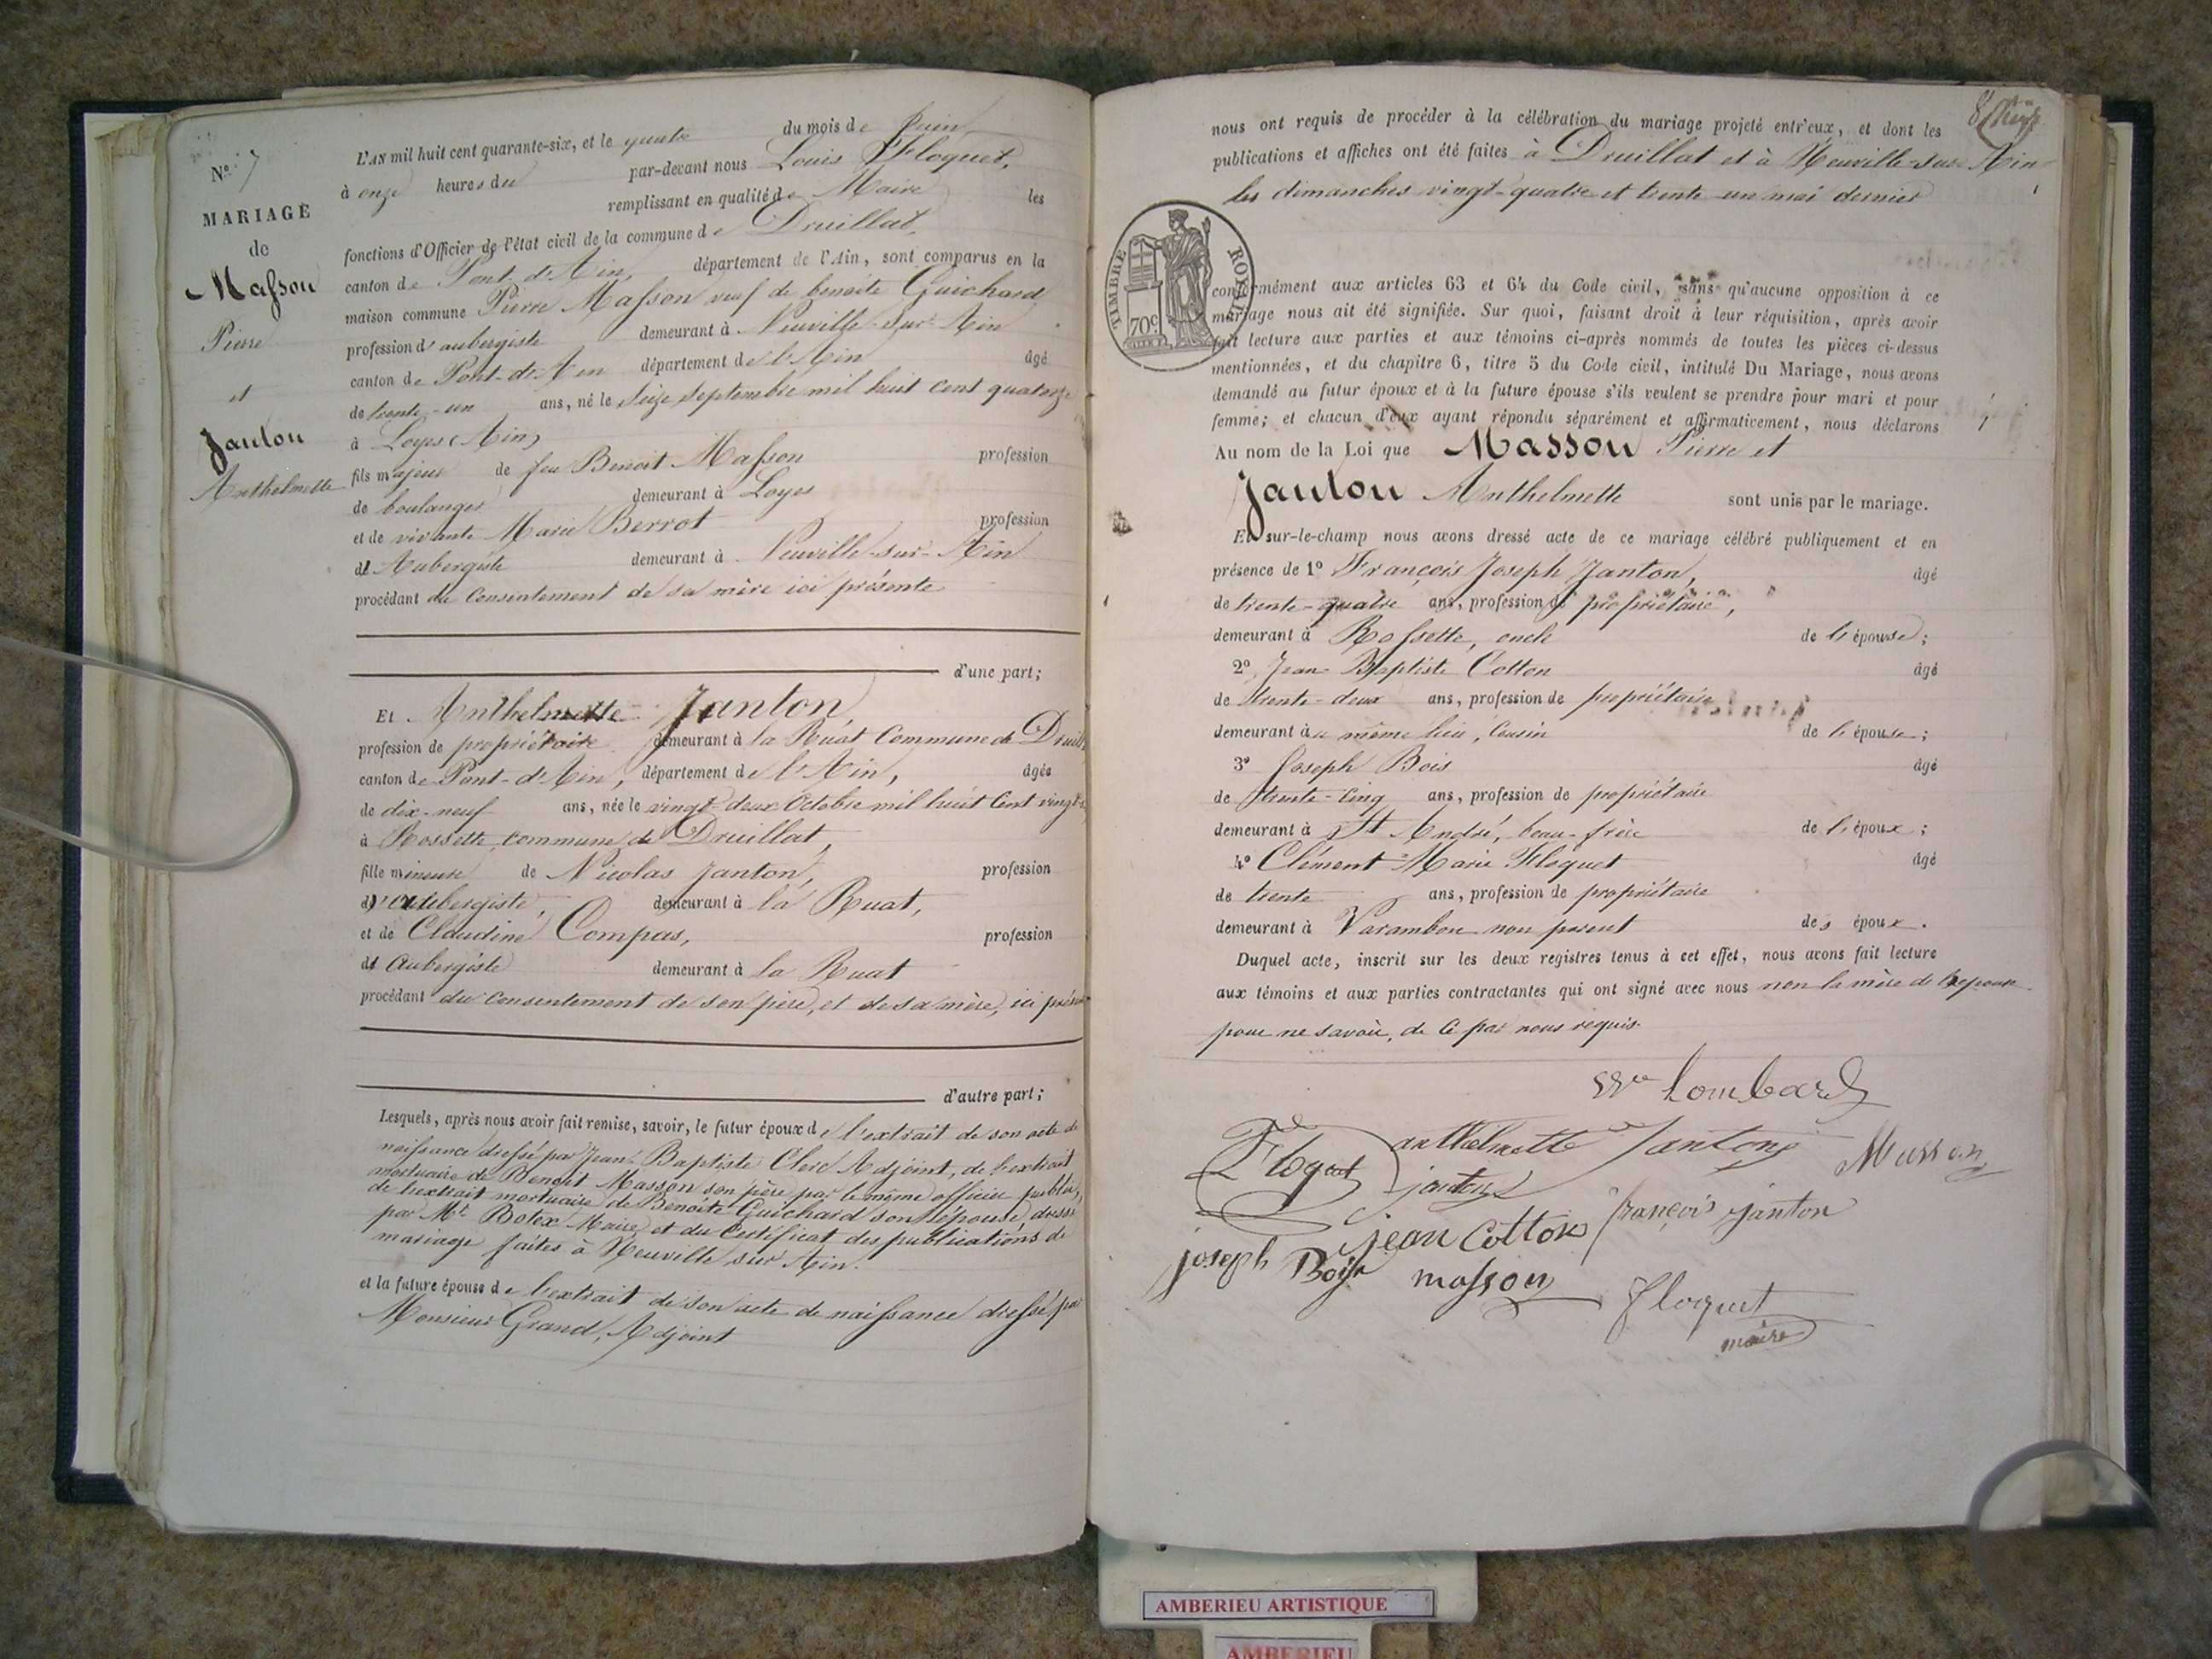 N.° 7
MARIAGE
de
Masson
Pierre
et
Janton
Anthelmette
L'AN mil huit cent quarante-six, et le quatre du mois de Juin
à onze heures du par-devant nous Louis Floquet,
remplissant en qualité de Maire les
fonctions d'Officier de l'état civil de la commune de Druillat,
canton de Pont-d'Ain, département de l'Ain, sont comparus en la
maison commune Pierre Masson veuf de benoite Guichard
profession d'aubergiste demeurant à Neuville-sur-Ain
canton de Pont-d'Ain département de l'Ain âgé
de trente-un ans, né le Seize Septembre mil huit cent quatorze
à Loyes (Ain)
fils majeur de feu Benoit Masson profession
de boulanger demeurant à Loyes
et de vivante Marie Berrot profession
d'Aubergiste demeurant à Neuville-sur-Ain
procédant du Consentement de sa mère ici présente
d'une part;
Et Anthelmette Janton
profession de propriétaire demeurant à la Ruat Commune de Druill
canton de Pont-d'Ain, département de l'Ain, âgée
de dix-neuf ans, née le vingt-deux Octobre mil huit Cent vingt-
à Rossette commune de Druillat,
fille mineure de Nicolas Janton, profession
d'aubergiste, demeurant à la Ruat,
et de Claudine Compas, profession
d'Aubergiste demeurant à la Ruat
procédant du consentement de son père, et de sa mère, ici prés
d'autre part;
Lesquels, après nous avoir fait remise, savoir, le futur époux de l'extrait de son acte de
naissance dressé par Jean-Baptiste Clerc Adjoint, de l'extrait
mortuaire de Benoit Masson son père par le même officier public,
de l'extrait mortuaire de Benoite Guichard son épouse, dressé
par Mr Botex Maire, et du Certificat des publications de
mariage faites à Neuville sur Ain.
et la future épouse de l'extrait de son acte de naissance dressé par
Monsieur Grand, Adjoint
nous ont requis de procéder à la célébration du mariage projeté entr'eux, et dont les
publications et affiches ont été faites à Druillat et à Neuville-sur-Ain
les dimanches vingt-quatre et trente-un mai dernier
TIMBRE ROYAL
70c
conformément aux articles 63 et 64 du Code civil, sans qu'aucune opposition à ce
mariage nous ait été signifiée. Sur quoi, faisant droit à leur réquisition, après avoir
fait lecture aux parties et aux témoins ci-après nommés de toutes les pièces ci-dessus
mentionnées, et du chapitre 6, titre 5 du Code civil, intitulé Du Mariage, nous avons
demandé au futur époux et à la future épouse s'ils veulent se prendre pour mari et pour
femme; et chacun d'eux ayant répondu séparément et affirmativement, nous déclarons
Au nom de la Loi que Masson Pierre et
Janton Anthelmette sont unis par le mariage.
Et sur-le-champ nous avons dressé acte de ce mariage célébré publiquement et en
présence de 1° François Joseph Janton, âgé
de trente-quatre ans, profession de propriétaire,
demeurant à Rossette, oncle de l'épouse;
2° Jean-Baptiste Cotton âgé
de trente-deux ans, profession de propriétaire
demeurant au même lieu, Cousin de l'épouse;
3° Joseph Bois âgé
de trente-cinq ans, profession de propriétaire
demeurant à St André, beau-frère de l'époux;
4° Clément Marie Floquet âgé
de trente ans, profession de propriétaire
demeurant à Varambon non parent des époux.
Duquel acte, inscrit sur les deux registres tenus à cet effet, nous avons fait lecture
aux témoins et aux parties contractantes qui ont signé avec nous non la mère de l'épouse
pour ne savoir, de ce par nous requis.
Lombard
Floquet anthelmette Janton Masson
janton
françois janton
jean Cotton
joseph Bois masson floquet
maire
AMBERIEU ARTISTIQUE
AMBERIEU